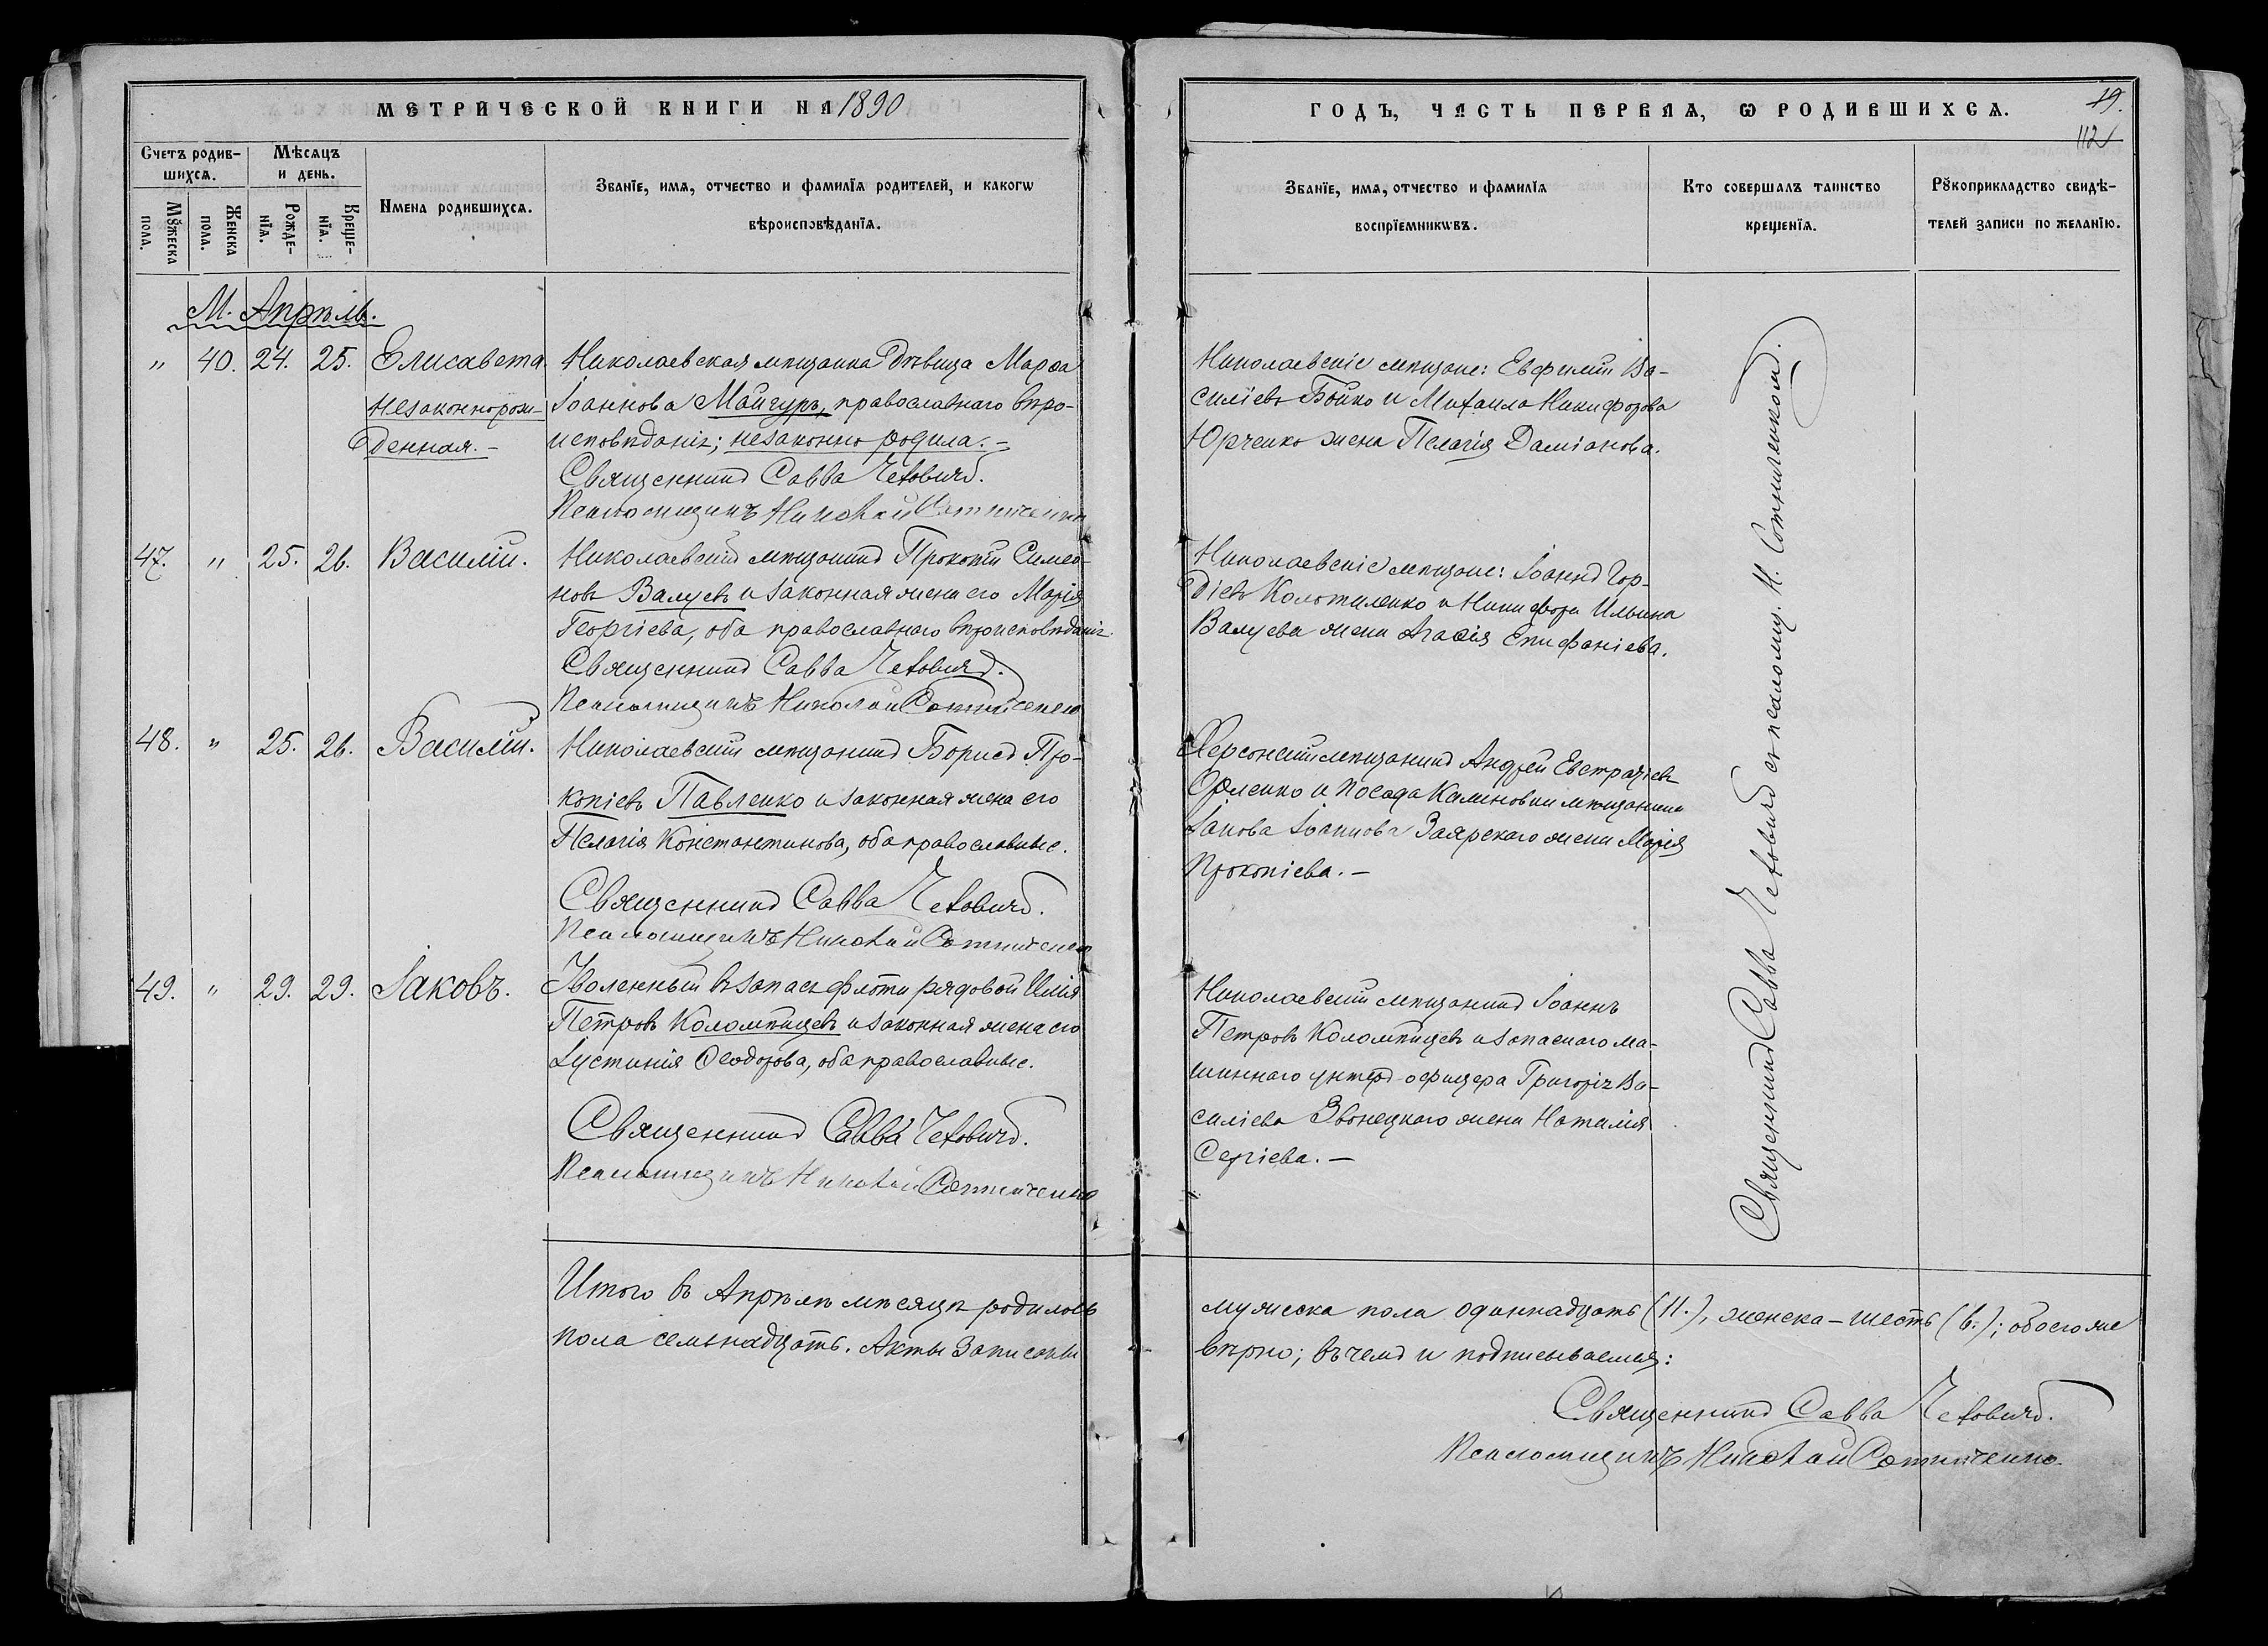 МЕТРИЧЕСКОЙ КНИГИ НА 1890
Счетъ родив-
шихся.
Мѣсяцъ
и день.
Мужеска
пола.
Женска
пола.
Рожде-
нія.
Креще-
нія.
Имена родившихся.
Званіе, имя, отчество и фамилія родителей, и какогѡ
вѣроисповѣданія.
М. Апрѣль.
" 40. 24. 25. Елисавета
незаконнорож-
денная. –
Николаевская мѣщанка дѣвица Марѳа
Іоаннова Майгуръ, православнаго вѣро-
исповѣданія; незаконно родила. –
Священникъ Савва Чеховичъ.
Псаломщикъ Николай Сотниченко
47. " 25. 26. Василій.
Николаевскій мѣщанинъ Прокопій Симео-
новъ Валуевъ и законная жена его Марія
Георгіева, оба православнаго вѣроисповѣданія.
Священникъ Савва Чеховичъ.
Псаломщикъ Николай Сотниченко
48. " 25. 26. Василій.
Николаевскій мѣщанинъ Борисъ Про-
копіевъ Павленко и законная жена его
Пелагія Константинова, оба православные.
Священникъ Савва Чеховичъ.
Псаломщикъ Николай Сотниченко
49. " 29. 29. Іаковъ.
Уволенный въ запасъ флота рядовой Илія
Петровъ Коломѣйцевъ и законная жена его
Іустинія Ѳеодорова, оба православные.
Священникъ Савва Чеховичъ.
Псаломщикъ Николай Сотниченко
Итого въ Апрѣлѣ мѣсяцѣ родилось
пола семьнадцать. Акты записаны
ГОДЪ, ЧАСТЬ ПЕРВАЯ, Ѡ РОДИВШИХСЯ.
19.
112
Званіе, имя, отчество и фамилія
воспріемникѡвъ.
Кто совершалъ таинство
крещенія.
Рукоприкладство свидѣ-
телей записи по желанію.
Николаевскіе мѣщане: Евфимій Ва-
силіевъ Бойко и Михаила Никифорова
Юрченко жена Пелагія Даміанова.
Николаевскіе мѣщане: Іоаннъ Гор-
діевъ Коломиленко и Никифора Ильина
Валуева жена Агаѳія Епифаніева.
Херсонскій мѣщанинъ Андрей Евстратіевъ
Орленко и посада Калиновки мѣщанина
Іакова Іоаннова Заярскаго жена Марія
Прокопіева. –
Николаевскій мѣщанинъ Іоаннъ
Петровъ Коломѣйцевъ и запаснаго ма-
шиннаго унтеръ-офицера Григорія Ва-
силіева Звонецкаго жена Наталія
Сергіева. –
Священникъ Савва Чеховичъ съ псаломщ. Н. Сотниченкомъ.
мужеска пола одиннадцать (11.), женска – шесть (6.); обоего же
вѣрно; въ чемъ и подписываемся:
Священникъ Савва Чеховичъ.
Псаломщикъ Николай Сотниченко.